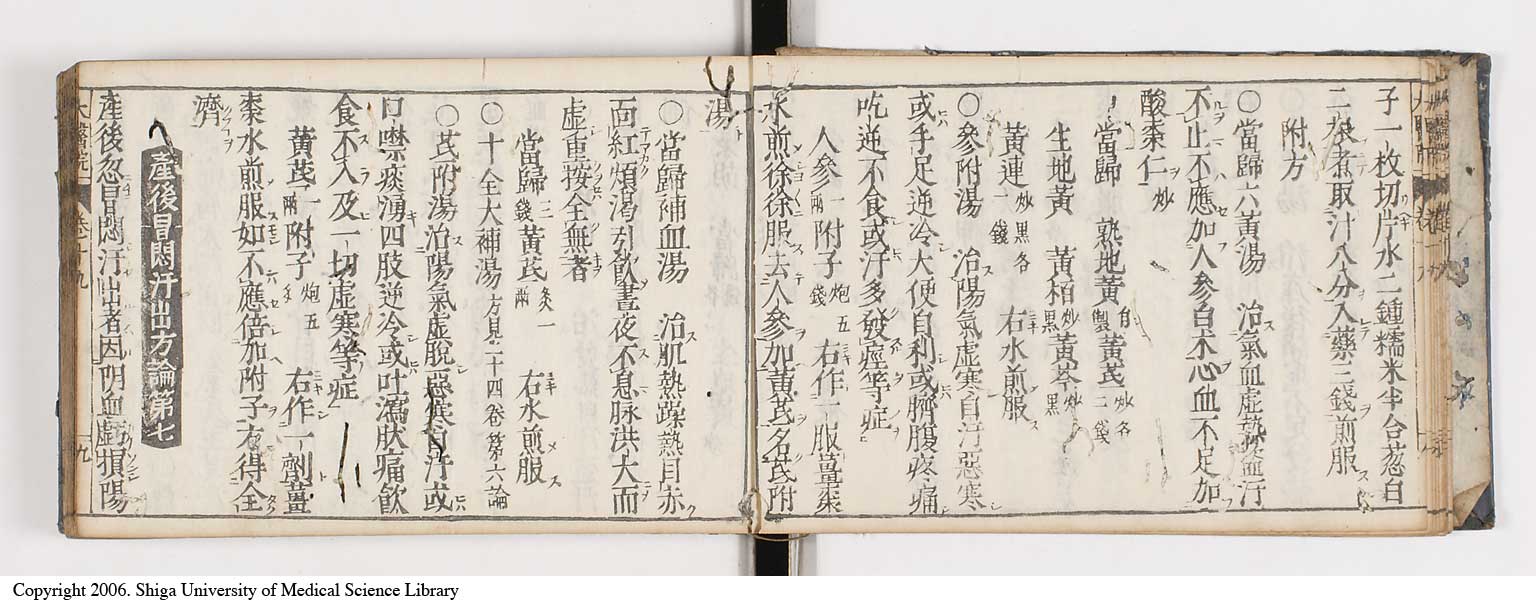 子一枚切片水二鍾糯米半合葱白
二茎煮取汁八分入藥三錢煎服
附方
〇當歸六黃湯 治氣血虛熱盜汗
不止不應加人參白朮心血不足加
酸棗仁炒
當歸 熟地黃自製 黃芪炒各二錢
生地黃 黃栢炒黑 黃芩炒黑
黃連炒黑各一錢 右水煎服
〇參附湯 治陽氣虛寒自汗惡寒
或手足逆冷大便自利或臍腹疼痛
吃逆不食或汗多發痙等症
人參一兩 附子炮五錢 右作一服薑棗
水煎徐徐服去人參加黃芪名芪附
湯
〇當歸補血湯 治肌熱躁熱目赤
面紅煩渴引飲晝夜不息脉洪大而
虛重按全無者
當歸三錢 黃芪炙一兩 右水煎服
〇十全大補湯方見二十四卷第六論
〇芪附湯治陽氣虛脫惡寒自汗或
口噤痰湧四肢逆冷或吐瀉腹痛飲
食不入及一切虛寒等症
黃芪一兩 附子炮五錢 右作一劑薑
棗水煎服如不應倍加附子方得全
濟
產後冒悶汗出方論第七
產後忽冒悶汗出者因陰血虛損陽
大醫院 卷十九 十九
Copyright 2006. Shiga University of Medical Science Library